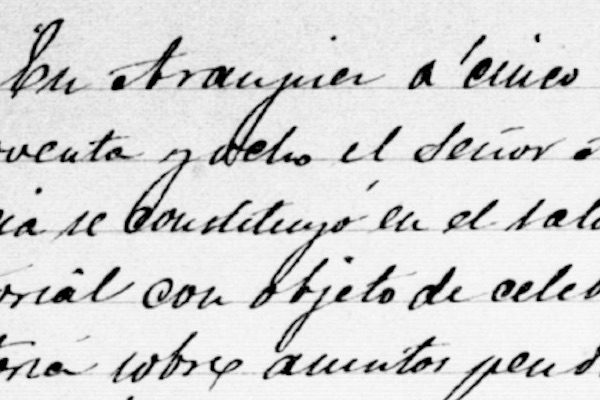 En Aranjuez a cinco
oventa y ocho el Señor
cia se constituyó en el salo
orial con objeto de celeb
toria sobre asuntos pend